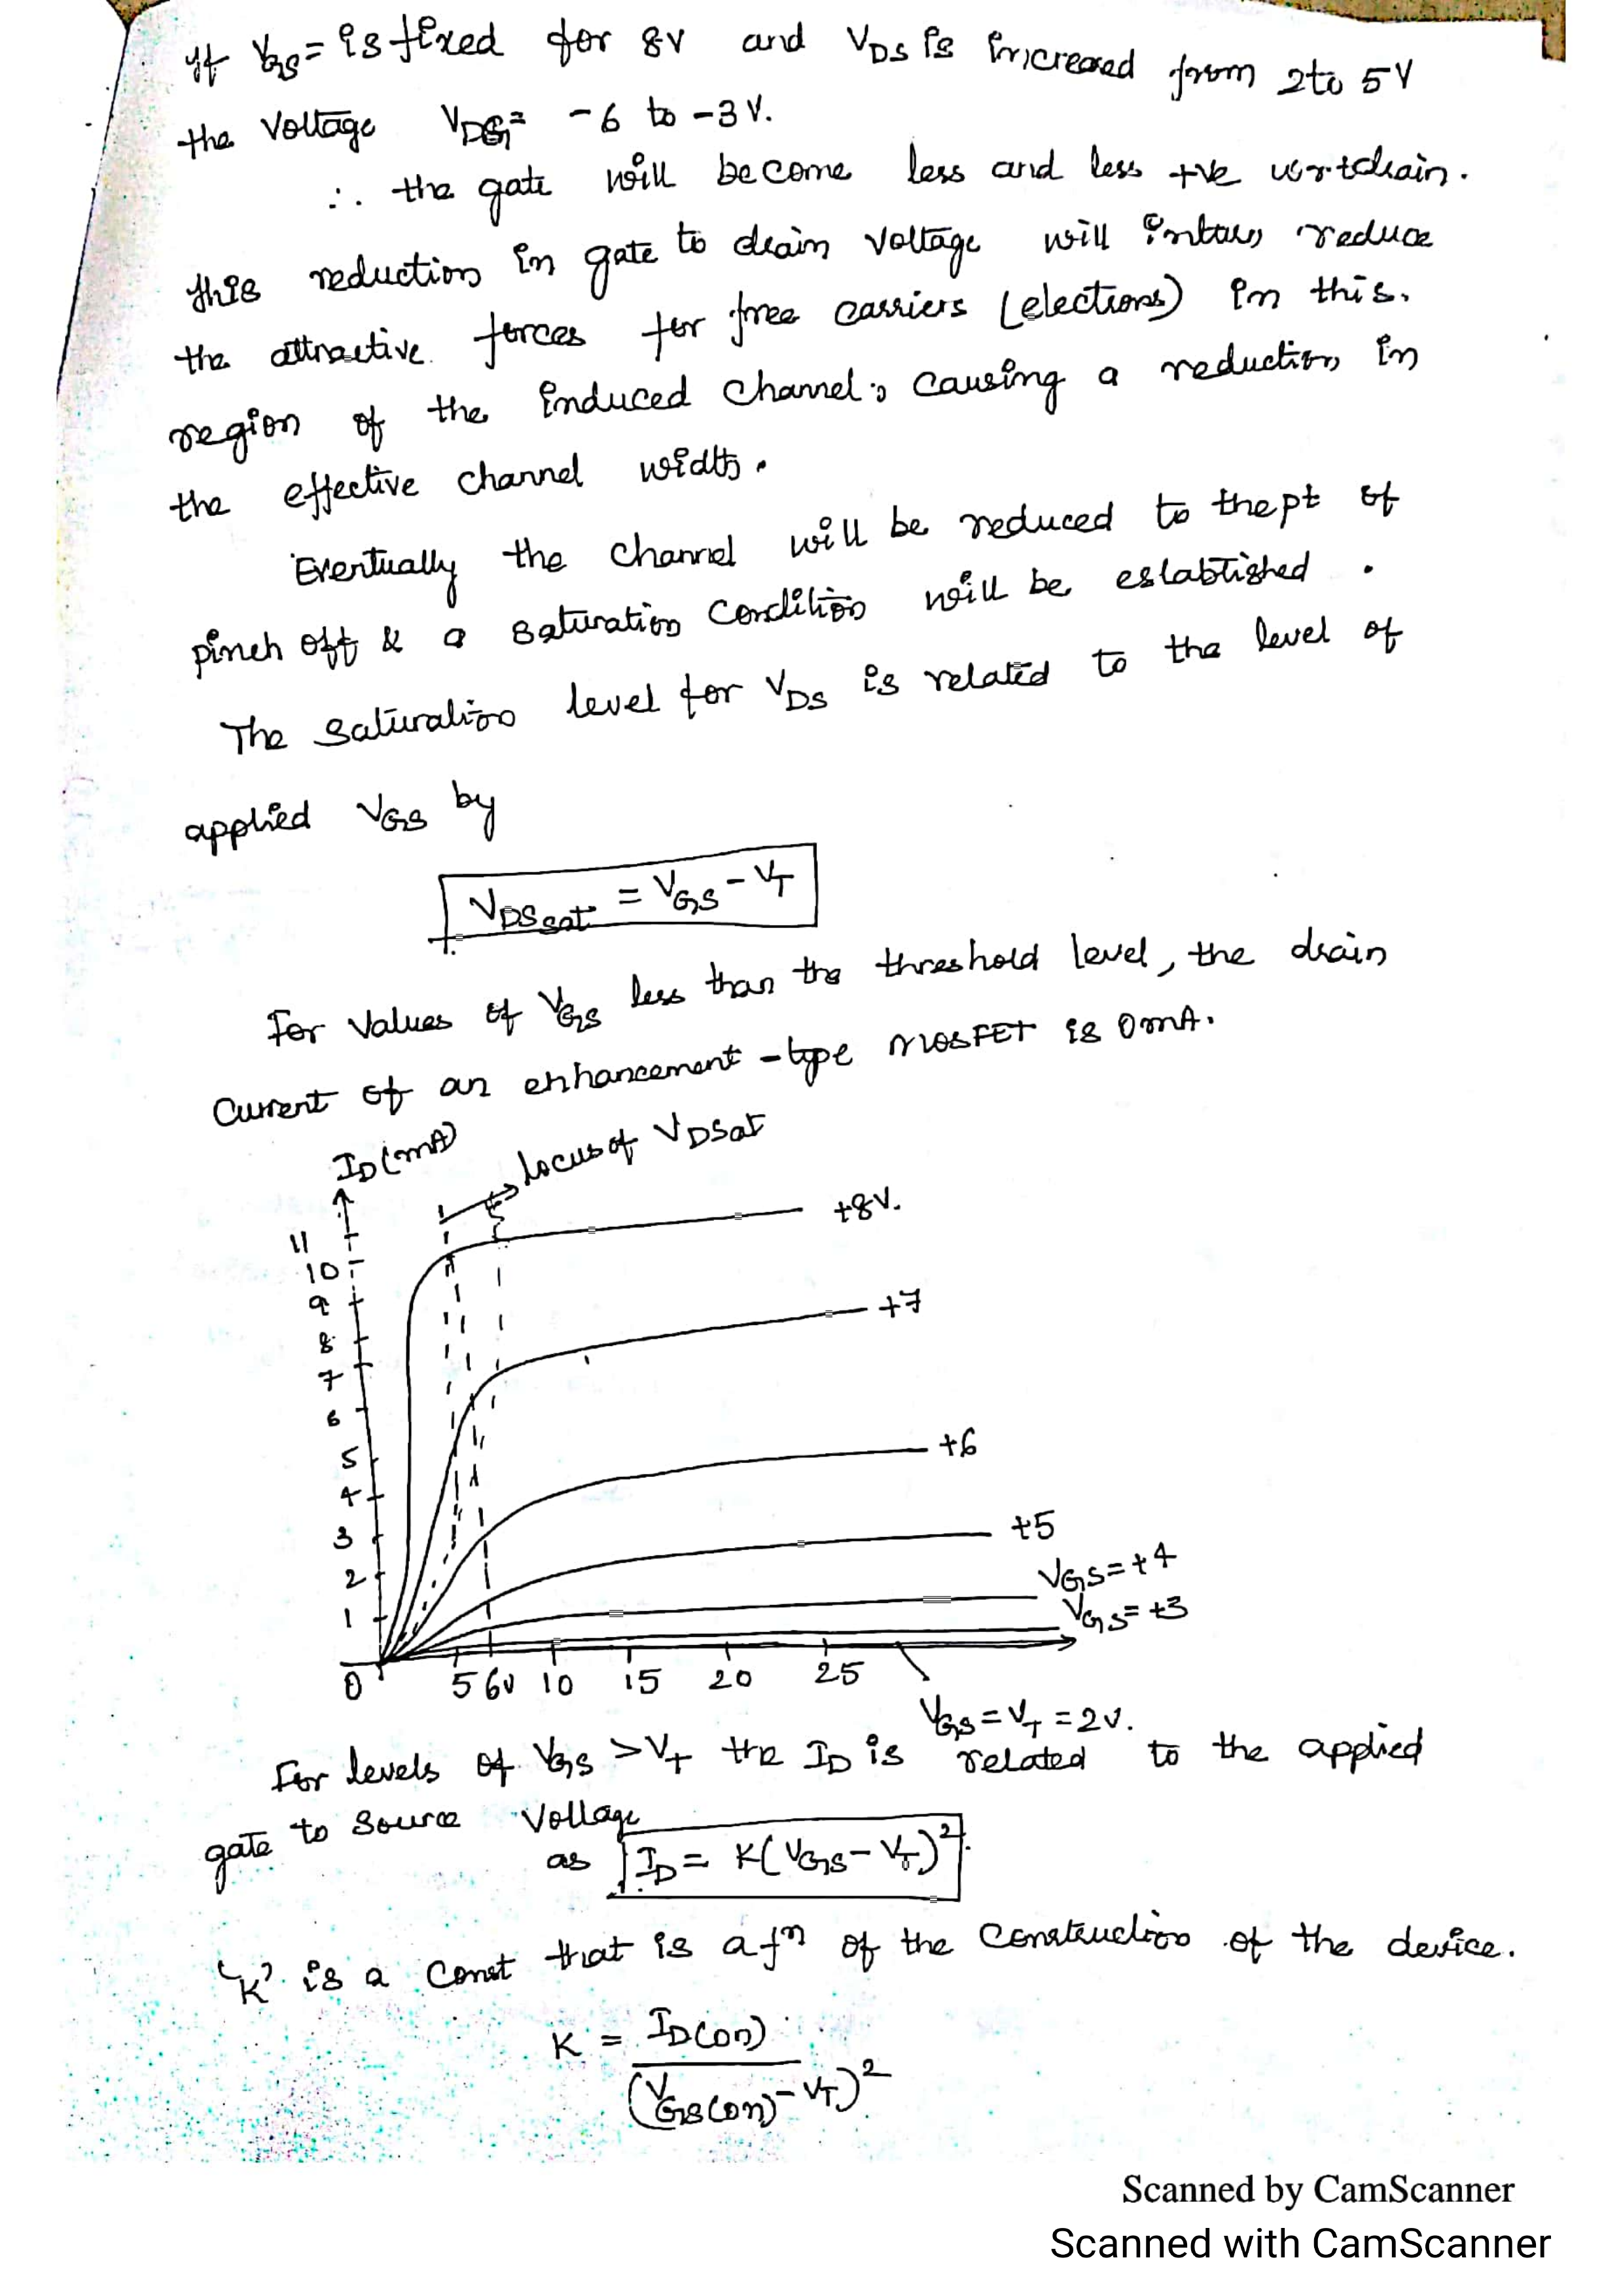 If VGS= is fixed for 8V and VDS is increased from 2 to 5V
the Voltage VDG= -6 to -3V.
∴ the gate will become less and less +ve w.r.t drain.
this reduction in gate to drain voltage will inturn reduce
the attractive forces for free carriers (elections) in this.
region of the induced channel, causing a reduction in
the effective channel width.
Eventually the channel will be reduced to the pt of
pinch off & a saturation condition will be established.
The saturation level for VDS is related to the level of
applied VGS by
VDSsat = VGS - VT
For values of VGS less than the threshold level, the drain
current of an enhancement-type MOSFET is 0mA.
ID(mA)
locus of VDSat
+8V.
11
10
9
8
7
6
5
4
3
2
1
+7
+6
+5
VGS=+4
VGS=+3
0 5 6V 10 15 20 25
VGS=VT=2V.
For levels of VGS >VT the ID is related to the applied
gate to source voltage
as ID= K(VGS-VT)²
'K' is a const that is a fⁿ of the construction of the device.
K = ID(on)
(VGS(on)-VT)²
Scanned by CamScanner
Scanned with CamScanner